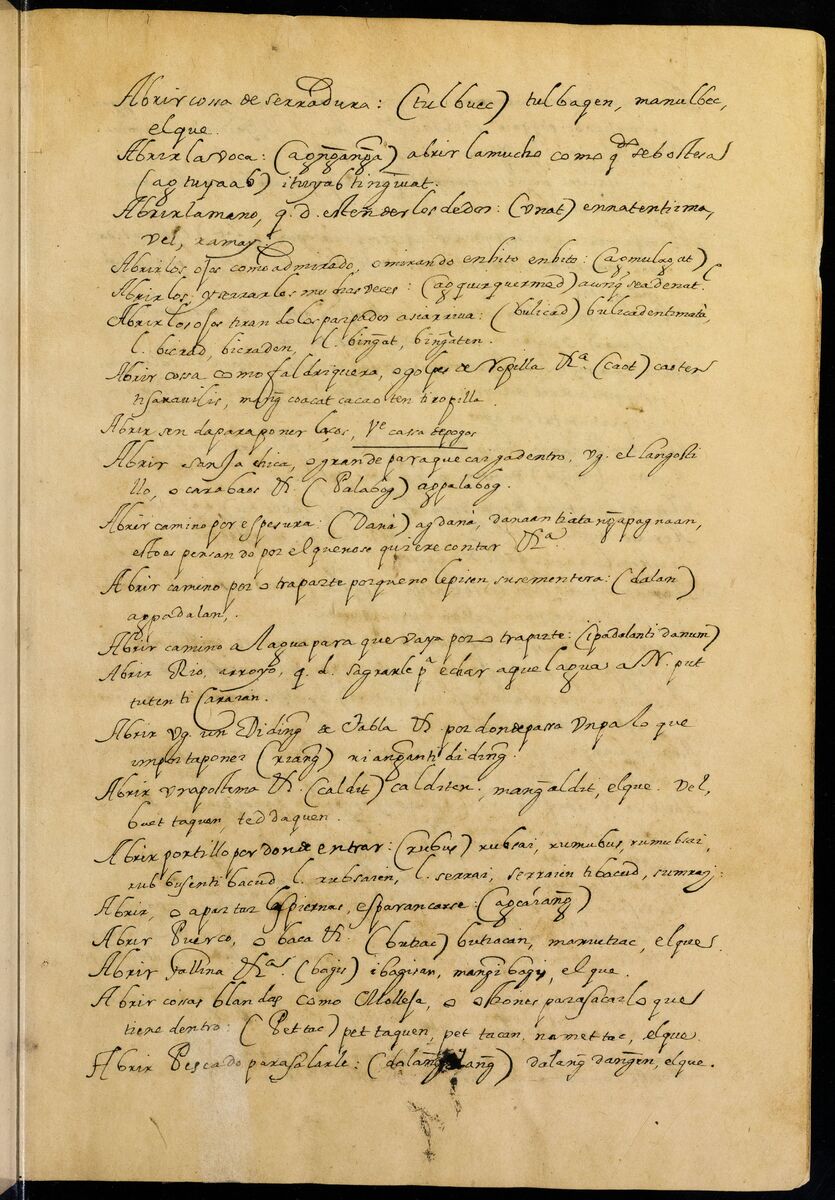 Abrir cossa de serradura: (tulbuec) tulbaqen, manulbec,
elque.
Abrir la voca: (agng̃ang̃a) abrir la mucho como qdo se bosteza
(agtuyaab) ituyab tinguat.
Abrir la mano, q. d. estender los dedos: (vnat) ennatentima,
vel, ramay.
Abrir los ojos como admirado, o mirando en hito en hito: (agmulagat)
Abrir los, y serrarlos muchas veces: (agquirquermed) aunq̃
Abrir los ojos tirandolos parpados asiarriua: (bulicad) bulicadentimatà,
l. bicrad, bicraden, l. bing̃at, bing̃aten.
Abrir cossa como faldriquera, o golpes de Ropilla &a. (caot) caoten
ti saravilis, mang̃coacat cacaoten ti ropilla.
Abrir senda para poner laços, Ve cassa de pogos
Abrir sanja chica, o grande para que caygadentro, vg. el langosti
llo, o carabaos &. (Palabòg) agpalabog.
Abrir camino por espesura: (Danà) agdanà, danaantiatang̃apagnaan,
esto es pensando por el que no se quiere contar &ra.
Abrir camino por otra parte porque no le pisen su sementera: (dalan)
agpadalan,.
Abrir camino al agua para que vaya por otra parte: (ipadalanti danum)
Abrir Rio, arroyo, q. d. sagrarle pa echar aquel agua a N. put
tuten ti Caraian.
Abrir vg. un Diding̃ de Tabla & por donde passa Vn palo que
importa poner (riang̃) riang̃anti diding̃.
Abrir vn apostema &. (caldit) calditen, mang̃aldit, elque. vel,
buettaquen, teddaquen.
Abrir portillo por donde entrar: (rubus) rubsai, rumubus, rumubsai,
rubbusenti bacud, l. rubsaien, l. serrai, serraien ti bacud, sumraj:
Abrir, o apartar las piernas, esparancarse: (agcárang̃)
Abrir Puerco, o baca &. (butiac) butiacan, mamutiac, elque.
Abrir Gallina &ras. (bagis) ibagisan, mang̃ibagis, elque.
Abrir cossas blandas como Molleja, o obones para sacar lo que
tiene dentro: (Pettac) pettaquen, pettacan, namettac, elque
Abrir Pescado para salarle: (dalang̃dang̃) dalang̃dang̃en, elque.